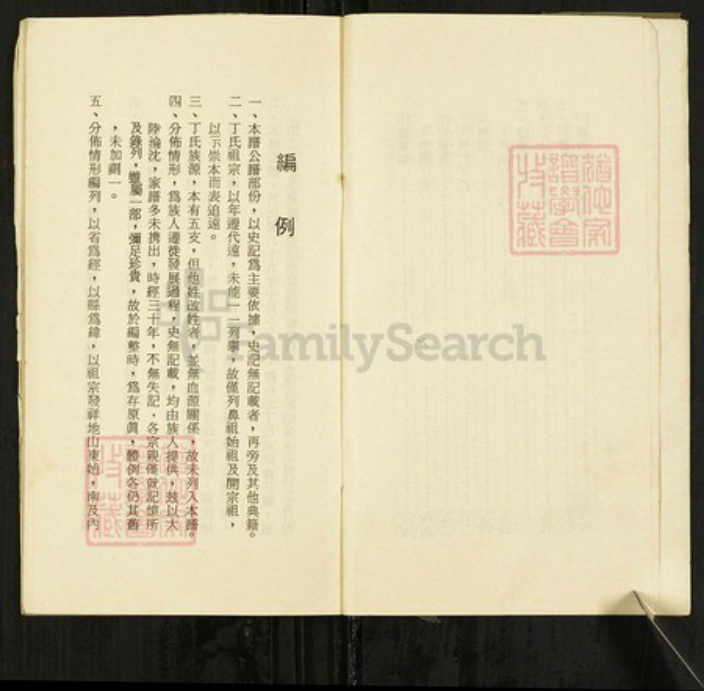 編例
一、本譜公譜部份，以史記爲主要依據，史記無記載者，再旁及其他典籍。
二、丁氏祖宗，以年遷代遠，未能一一列舉，故僅列鼻祖始祖及開宗祖，
以示崇本而表追遠。
三、丁氏族源，本有五支，但他姓改姓者，並無血源關係，故未列入本譜。
四、分佈情形，爲族人遷徙發展過程，史無記載，均由族人提供，茲以大
陸淪沈，家譜多未携出，時經三十年，不無失記，各宗親僅就記憶所
及錄列，雖屬一部，彌足珍貴，故於編整時，爲存原眞，體例各仍其舊
，未加劃一。
五、分佈情形編列，以省爲經，以縣爲緯，以祖宗發祥地山東始，南及內
FamilySearch
譜學會
收藏